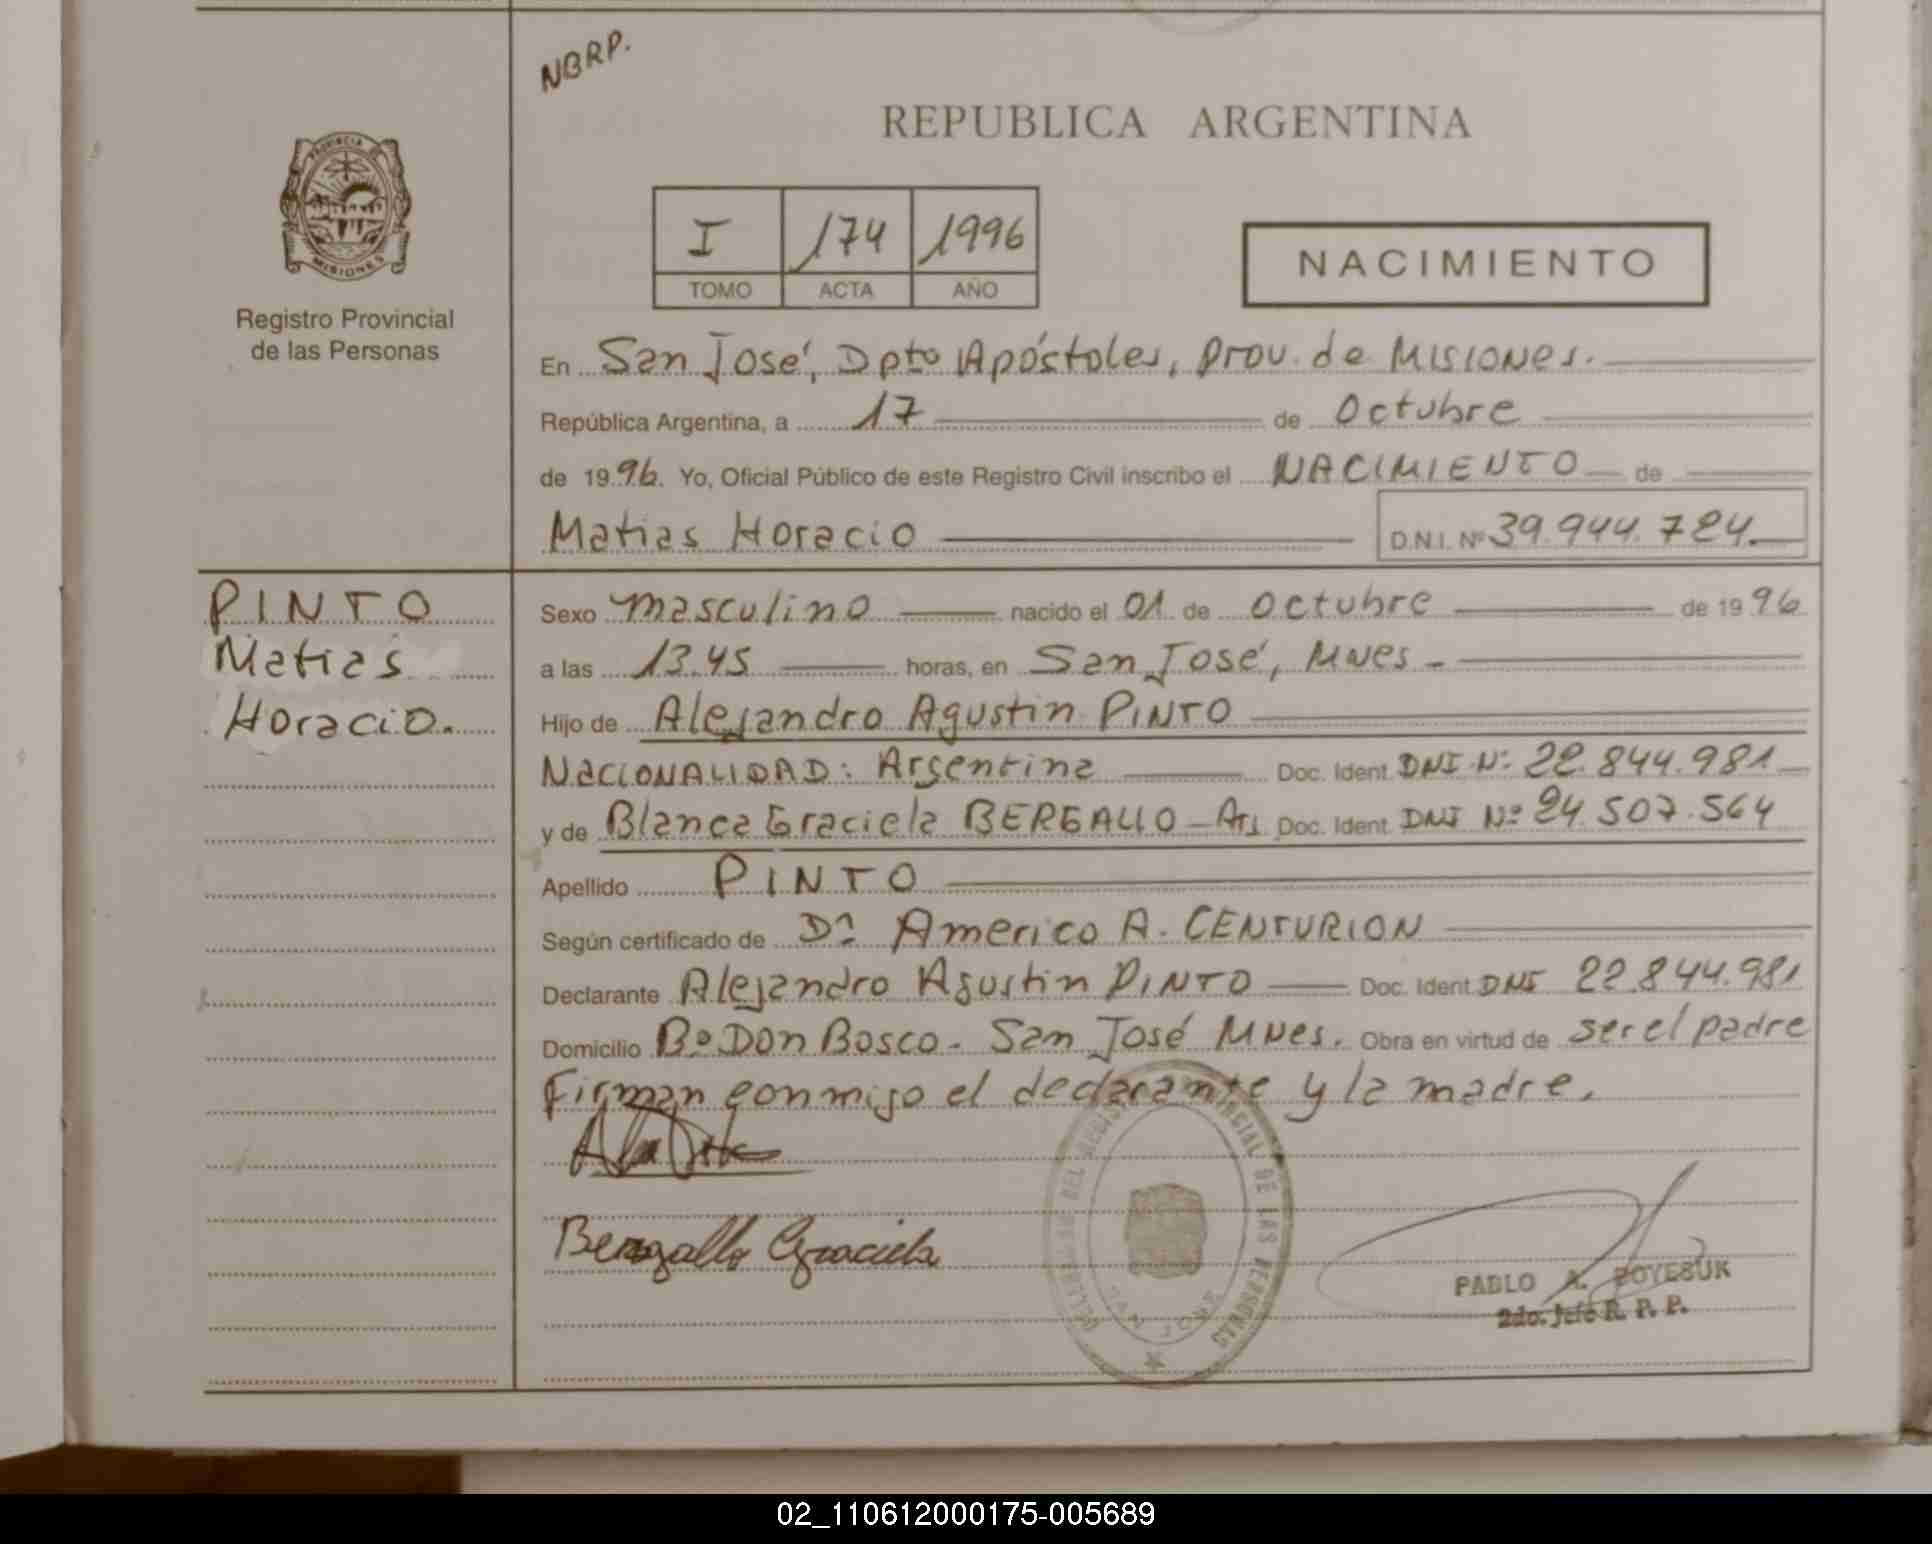 NBRP.
REPUBLICA ARGENTINA
PROVINCIA DE
MISIONES
Registro Provincial
de las Personas
I 174 1996
TOMO ACTA AÑO
NACIMIENTO
En San José, Dpto Apóstoles, Prov. de Misiones.
República Argentina, a 17 de Octubre
de 1996. Yo, Oficial Público de este Registro Civil inscribo el NACIMIENTO de
Matias Horacio D.N.I. Nº 39.944.724.
PINTO
Matias
Horacio.
Sexo masculino nacido el 01 de Octubre de 1996
a las 13.45 horas, en San José, Mnes -
Hijo de Alejandro Agustin PINTO
NACIONALIDAD: Argentina Doc. Ident. DNI Nº 22.844.981
y de Blanca Graciela BERGALLO - Arg Doc. Ident. DNI Nº 24.507.564
Apellido PINTO
Según certificado de Dr Americo A. CENTURION
Declarante Alejandro Agustin PINTO Doc. Ident. DNI 22.844.981
Domicilio Bº Don Bosco - San José Mnes. Obra en virtud de ser el padre
Firman conmigo el declarante y la madre.
Bergallo Graciela
PROVINCIAL DE LAS PERSONAS
SAN JOSE
PABLO A. BOYESUK
2do. Jefe R. P. P.
02_110612000175-005689